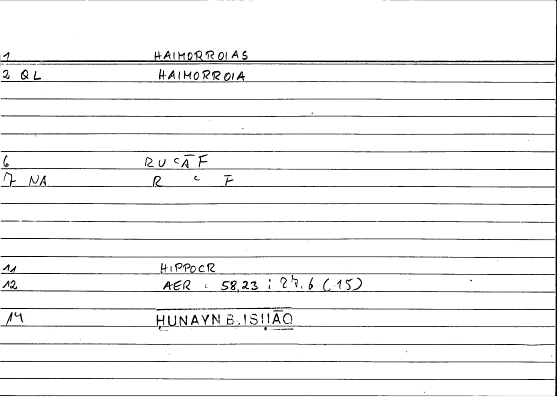 1 HAIMORROIAS
2 QL HAIMORROIA
6 RU ʿĀF
7 NA R ʿ F
11 HIPPOCR
12 AER : 58,23 : 27.6 (15)
14 ḤUNAYN B. ISḤĀQ